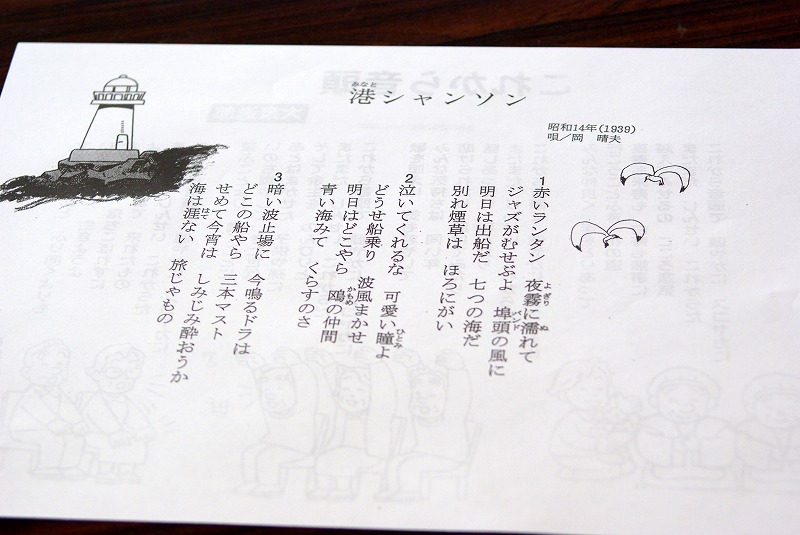 みなと
港シャンソン
昭和14年(1939)
唄/岡 晴夫
よぎり ぬ
1赤いランタン 夜霧に濡れて
バンド
ジャズがむせぶよ 埠頭の風に
明日は出船だ 七つの海だ
別れ煙草は ほろにがい
ひとみ
2泣いてくれるな 可愛い瞳よ
どうせ船乗り 波風まかせ
かもめ
明日はどこやら 鴎の仲間
青い海みて くらすのさ
3暗い波止場に 今鳴るドラは
どこの船やら 三本マスト
せめて今宵は しみじみ酔おうか
はて
海は涯ない 旅じゃもの